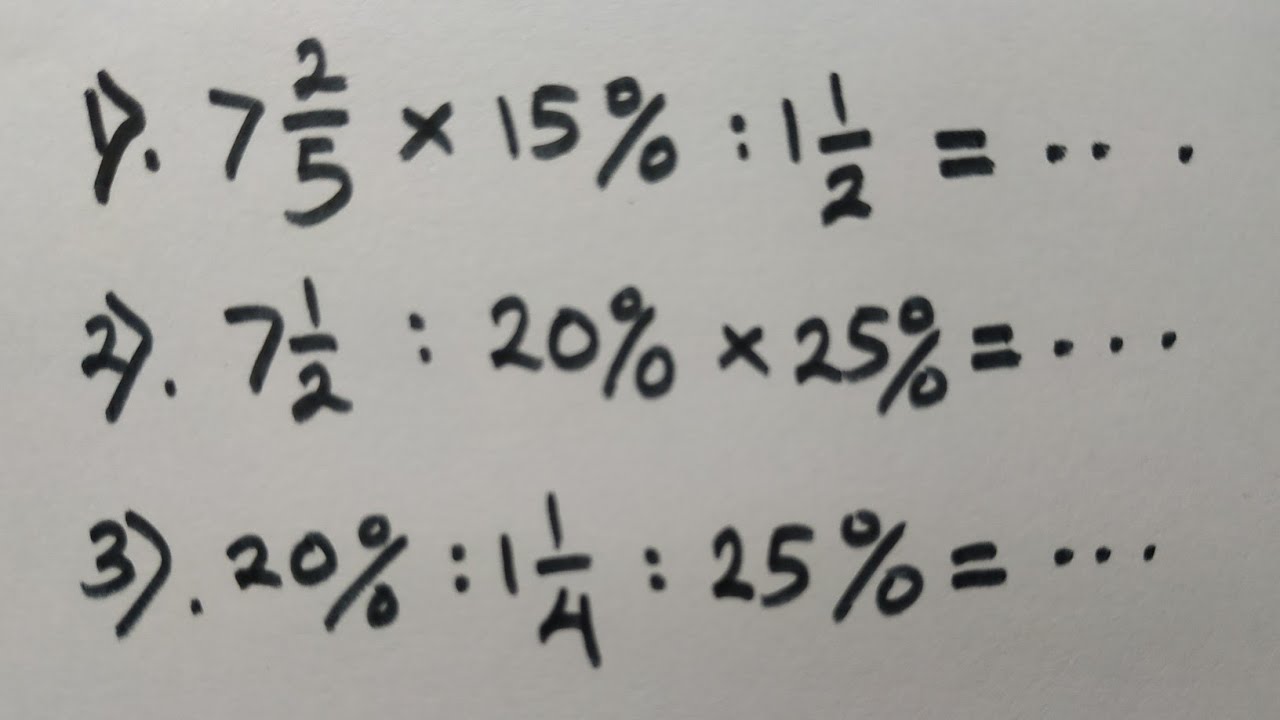 1). 7 2/5 × 15% : 1 1/2 = ...
2). 7 1/2 : 20% × 25% = ...
3). 20% : 1 1/4 : 25% = ...